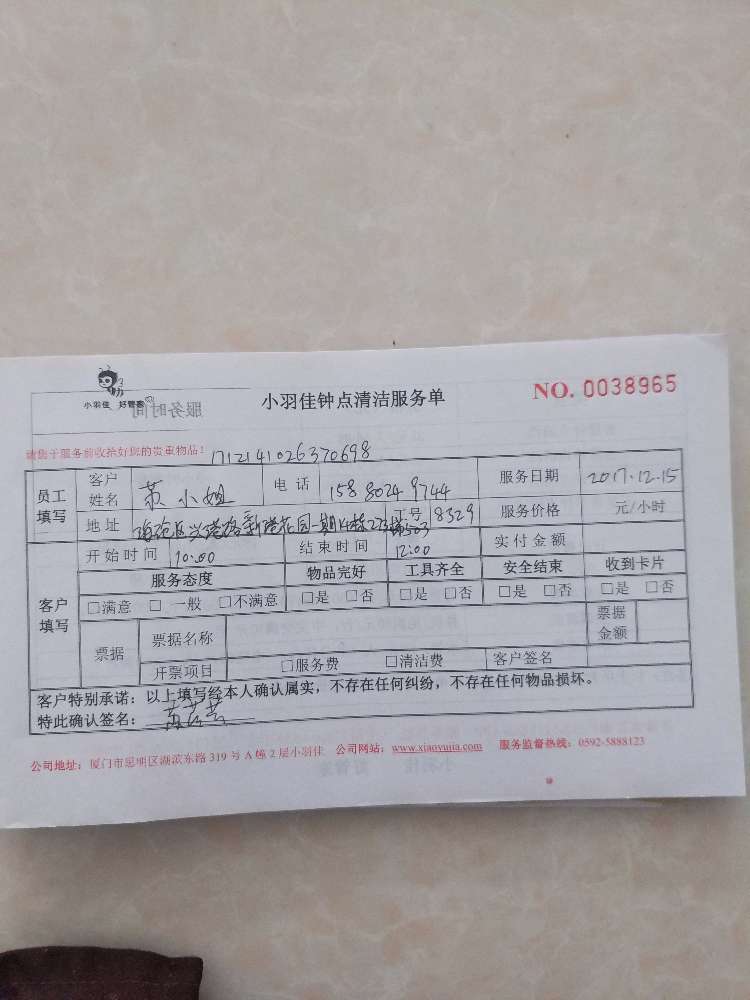 小羽佳 好管家
服务时间
小羽佳钟点清洁服务单
NO. 0038965
请您于服务前收拾好您的贵重物品！
1712141026370698
员工填写 客户姓名 苏小姐 电话 158 8024 9744 服务日期 2017.12.15
地址 新港花园一期 503 工号 8329 服务价格 元/小时
开始时间 10:00 结束时间 12:00 实付金额
客户填写 服务态度 物品完好 工具齐全 安全结束 收到卡片
□满意 □一般 □不满意 □是 □否 □是 □否 □是 □否 □是 □否
票据 票据名称 票据金额
开票项目 □服务费 □清洁费 客户签名
客户特别承诺：以上填写经本人确认属实，不存在任何纠纷，不存在任何物品损坏。
特此确认签名：
公司地址：厦门市思明区湖滨东路 319 号 A 幢 2 层小羽佳 公司网站：www.xiaoyujia.com 服务监督热线：0592-5888123